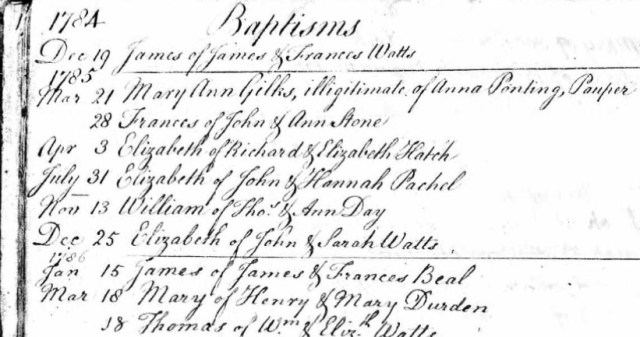 1784 Baptisms
Dec 19 James of James & Frances Watts
1785
Mar 21 Mary Ann Gilks, illigitimate of Anna Ponting, Pauper
28 Frances of John & Ann Stone
Apr 3 Elizabeth of Richard & Elizabeth Hatch
July 31 Elizabeth of John & Hannah Pachel
Nov 13 William of Thos. & Ann Day
Dec 25 Elizabeth of John & Sarah Watts
1786
Jan 15 James of James & Frances Beal
Mar 18 Mary of Henry & Mary Durden
18 Thomas of Wm & Elizth Watts